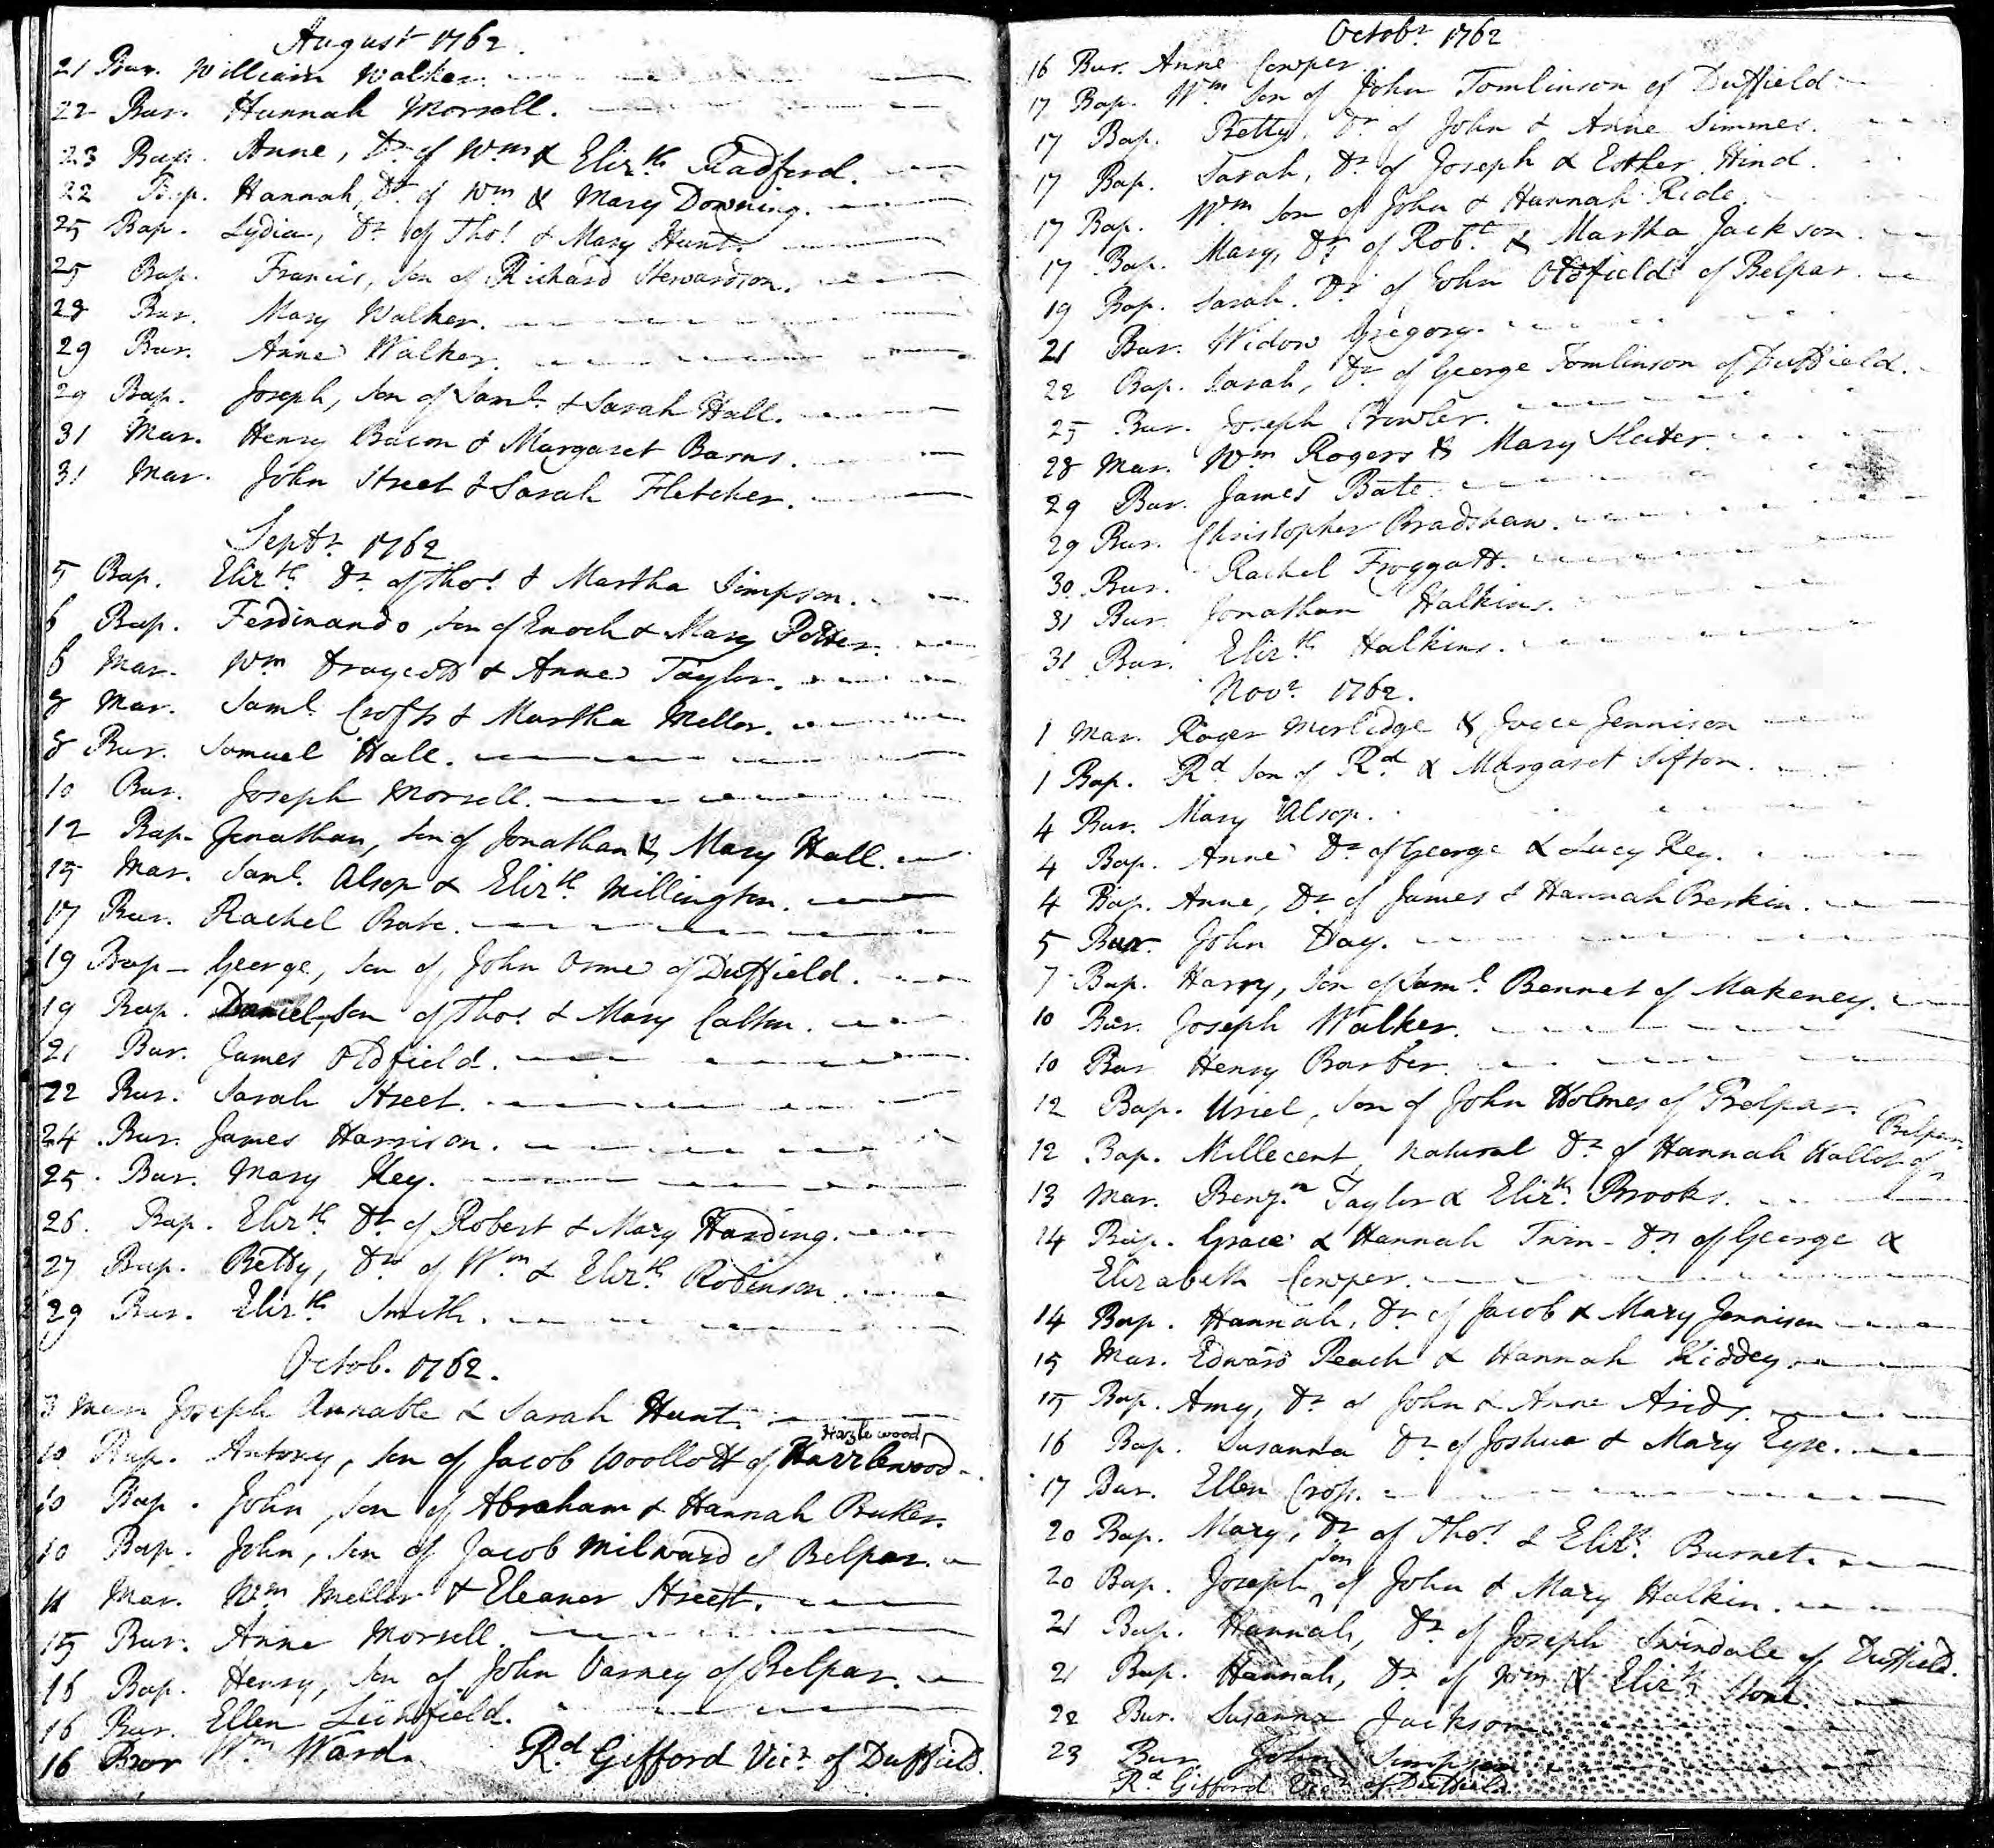 August 1762.
21 Bur. William Walker.
22 Bur. Hannah Morrell.
23 Bap. Anne, Dr. of Wm. & Elizth. Radford.
22 Bap. Hannah, Dr. of Wm & Mary Downing.
25 Bap. Lydia, Dr. of Thos. & Mary Hunt.
25 Bap. Francis, Son of Richard Stewardson.
28 Bur. Mary Walker.
29 Bur. Anne Walker.
29 Bap. Joseph, Son of Saml. & Sarah Hall.
31 Mar. Henry Bacon & Margaret Barns.
31 Mar. John Street & Sarah Fletcher.
Septr. 1762
5 Bap. Elizth. Dr. of Thos. & Martha Simpson.
6 Bap. Ferdinando, Son of Enoch & Mary Potter.
6 Mar. Wm Draycott & Anne Taylor.
8 Mar. Saml. Crofts & Martha Mellor.
8 Bur. Samuel Hall.
10 Bur. Joseph Morrell.
12 Bap. Jonathan, Son of Jonathan & Mary Hall.
15 Mar. Saml. Alsop & Elizth. Millington.
17 Bur. Rachel Bate.
19 Bap. George, Son of John Orme of Duffield.
19 Bap. Daniel, Son of Thos. & Mary Calton.
21 Bur. James Oldfield.
22 Bur. Sarah Street.
24 Bur. James Harrison.
25 Bur. Mary Key.
26. Bap. Elizth. Dr. of Robert & Mary Harding.
27 Bap. Betty, Dr. of Wm. & Elizth. Robinson.
29 Bur. Elizth. Smith.
Octob. 1762.
3 Mar. Joseph Annable & Sarah Hunt.
Hazlewood
10 Bap. Antony, Son of Jacob Woollott of Hazzlewood
10 Bap. John, Son of Abraham & Hannah Butler.
10 Bap. John, Son of Jacob Milward of Belpar.
11 Mar. Wm Mellor & Eleanor Street.
15 Bur. Anne Morrell.
16 Bap. Henry, Son of John Varney of Belpar.
16 Bur. Ellen Lichfield.
16 Bur Wm Ward. Rd. Gifford Vicr. of Duffield.
Octobr. 1762
16 Bur. Anne Cowper.
17 Bap. Wm Son of John Tomlinson of Duffield
17 Bap. Betty, Dr. of John & Anne Simmes.
17 Bap. Sarah, Dr. of Joseph & Esther Hind.
17 Bap. Wm Son of John & Hannah Ride.
17 Bap. Mary, Dr. of Robt. & Martha Jackson.
19 Bap. Sarah. Dr. of John Oldfield of Belpar.
21 Bur. Widow Gregory.
22 Bap. Sarah, Dr. of George Tomlinson of Duffield.
25 Bur. Joseph Bowler.
28 Mar. Wm Rogers & Mary Slater.
29 Bur. James Bate.
29 Bur. Christopher Bradshaw.
30 Bur. Rachel Froggatt.
31 Bur. Jonathan Halkins.
31 Bur. Elizth. Halkins.
Novr. 1762.
1 Mar. Roger Morledge & Joyce Jennison
1 Bap. Rd Son of Rd & Margaret Sifton.
4 Bur. Mary Alsop.
4 Bap. Anne Dr. of George & Lucy Key.
4 Bap. Anne, Dr. of James & Hannah Berkin.
5 Bur John Day.
7 Bap. Harry, Son of Saml. Bennet of Makeney.
10 Bur. Joseph Walker.
10 Bur. Henry Barber.
12 Bap. Uriel, Son of John Holmes of Belpar.
12 Bap. Millecent, Natural Dr. of Hannah Hallot of Belpar.
13 Mar. Benjn. Taylor & Elizth. Brooks.
14 Bap. Grace & Hannah Twin-Drs of George &
Elizabeth Cowper.
14 Bap. Hannah, Dr. of Jacob & Mary Jennison
15 Mar. Edward Peach & Hannah Kiddey.
15 Bap. Amy, Dr. of John & Anne
16 Bap. Susanna Dr. of Joshua & Mary Eyre.
17 Bur. Ellen Cross.
20 Bap. Mary, Dr. of Thos. & Elizth. Burnet.
20 Bap. Joseph Son of John & Mary Halkin.
21 Bap. Hannah, Dr. of Joseph Swindale of Duffield.
21 Bap. Hannah, Dr. of Wm & Elizth. Stone.
22 Bur. Susanna Jackson
23 Bur. John Simpson
Rd. Gifford Vicr. of Duffield